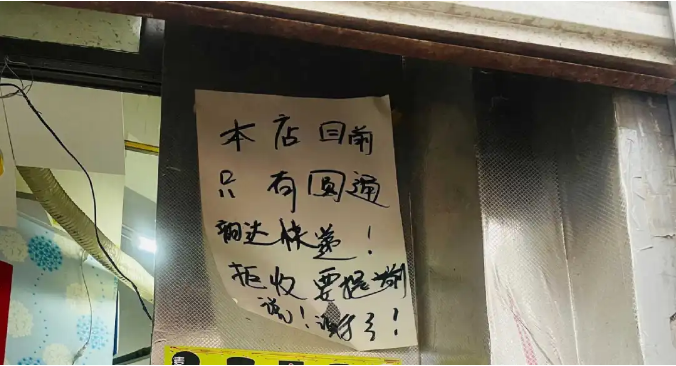 本店目前
只有圆通
韵达快递！
拒收要提前
说！谢了！